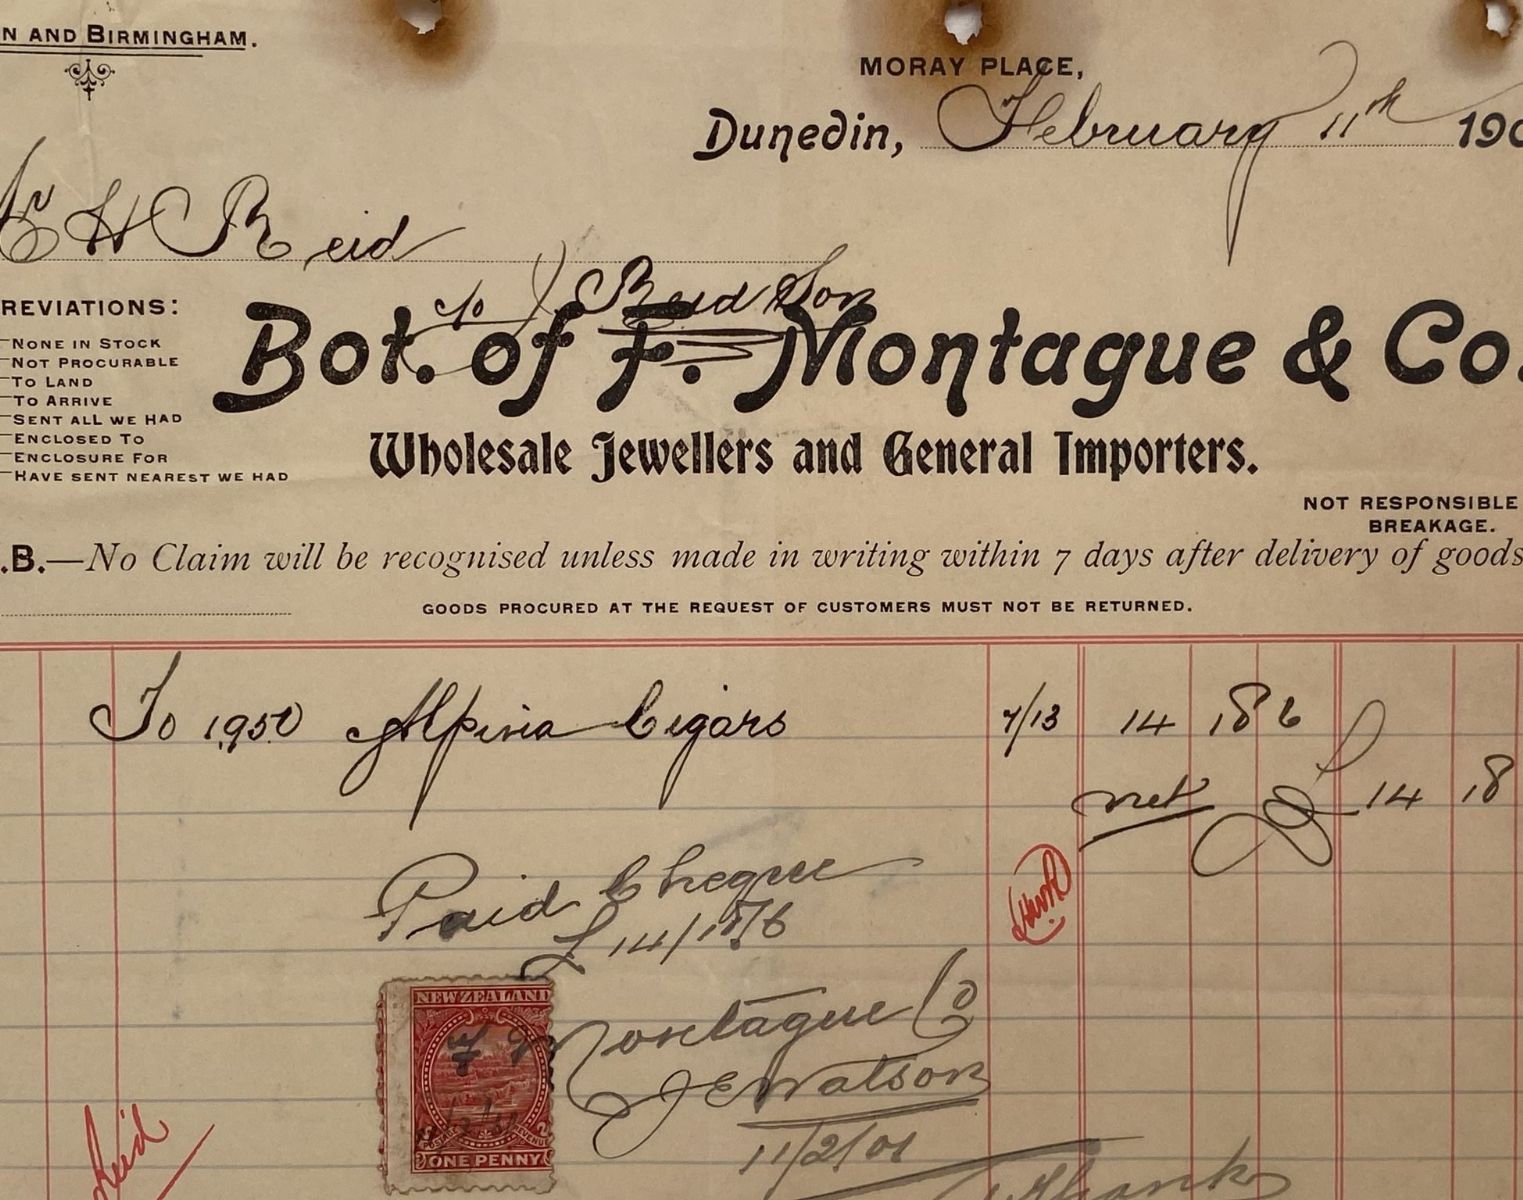 N AND BIRMINGHAM.
MORAY PLACE,
Dunedin, February 11th 190
E H Reid
c/o J Reid Son
REVIATIONS:
NONE IN STOCK
NOT PROCURABLE
TO LAND
TO ARRIVE
SENT ALL WE HAD
ENCLOSED TO
ENCLOSURE FOR
HAVE SENT NEAREST WE HAD
Bot. of F. Montague & Co.
Wholesale Jewellers and General Importers.
NOT RESPONSIBLE
BREAKAGE.
.B.—No Claim will be recognised unless made in writing within 7 days after delivery of goods
GOODS PROCURED AT THE REQUEST OF CUSTOMERS MUST NOT BE RETURNED.
To 1950 Alpina Cigars 7/13 14 18 6
net £ 14 18
Paid Cheque
£14/18/6
NEW ZEALAND
F Montague Co
J E Watson
POSTAGE REVENUE
ONE PENNY
11/2/01
Reid
Thanks